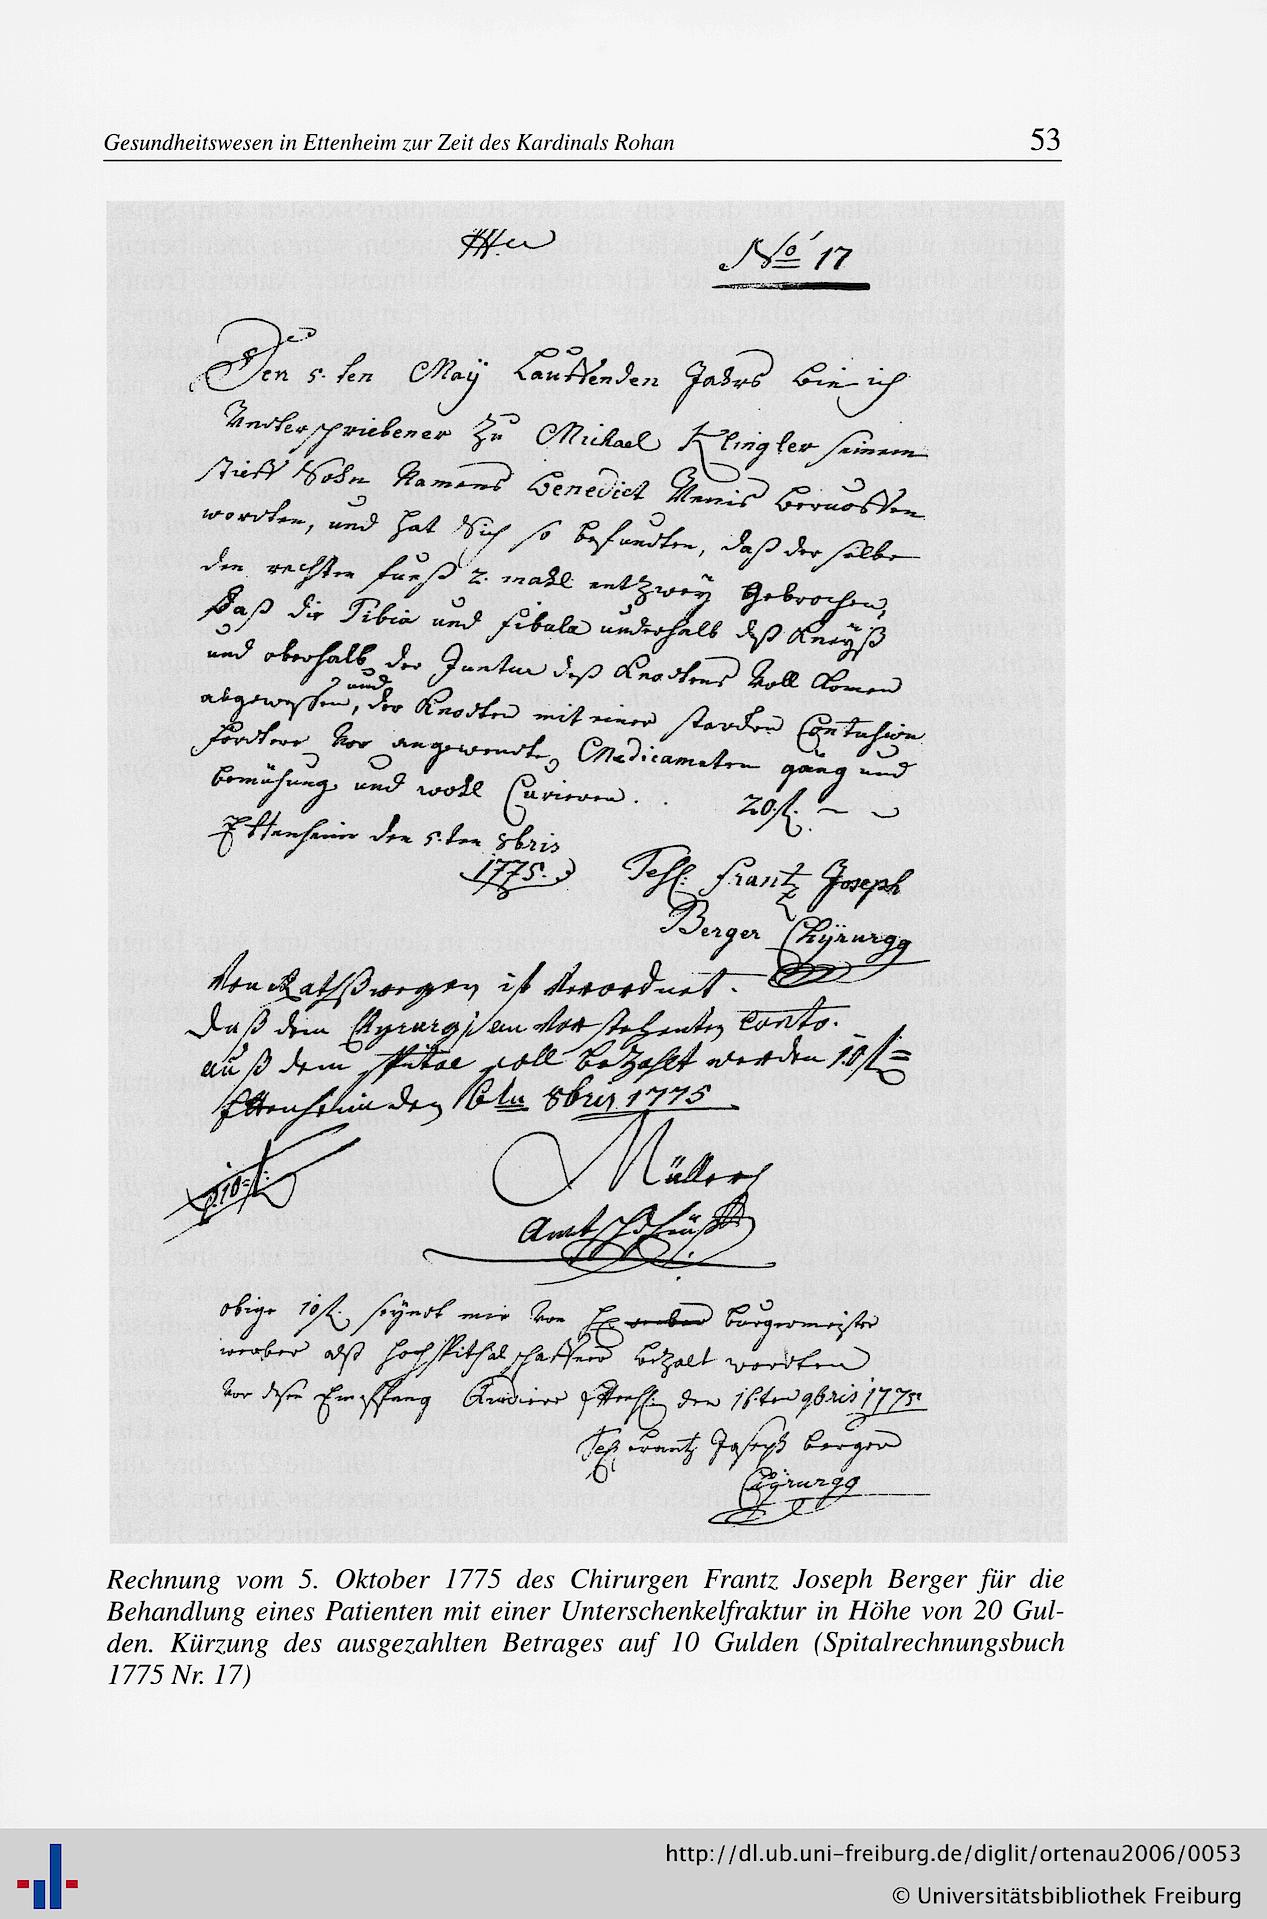 Gesundheitswesen in Ettenheim zur Zeit des Kardinals Rohan
53
No 17
Den 5. ten Maÿ Lauffenden Jahrs bin ich
Undterschriebener zu Michael Klingler seinem
stieff Sohn Namens Benedict beruoffen
wordten, und hat Sich so befundten, daß der selbe
den rechten fueß 2. mahl entzweÿ gebrochen,
daß die Tibia und fibula underhalb deß Kneÿß
und oberhalb der Juntur deß Knodtens Voll Komen
abgewessen, und der Knodten mit einer starcken Contusion
fordtere vor angewendte Medicamenten gäng und
bemühung und wohl Curieren. . 20 fl.
Ettenheim den 5. ten 8bris
1775.
Frantz Joseph
Berger Chÿrurgg
Von Rathßwegen ist Verordnet.
Daß dem Chyrurgi an Vor stehenten Conto.
auß dem spital soll bezahlt werden 10 fl =
Ettenheim den 6ten 8bris 1775
10 fl
Müller
Amtschultheiß
obige 10 fl. seÿndt mir von H. burgermeister
werber alß hochspithal schaffner bezalt wordten
vor desen Empfang den 16. ten 9bris 1775
frantz Joseph berger
Chÿrurgg
Rechnung vom 5. Oktober 1775 des Chirurgen Frantz Joseph Berger für die
Behandlung eines Patienten mit einer Unterschenkelfraktur in Höhe von 20 Gul-
den. Kürzung des ausgezahlten Betrages auf 10 Gulden (Spitalrechnungsbuch
1775 Nr. 17)
http://dl.ub.uni-freiburg.de/diglit/ortenau2006/0053
© Universitätsbibliothek Freiburg